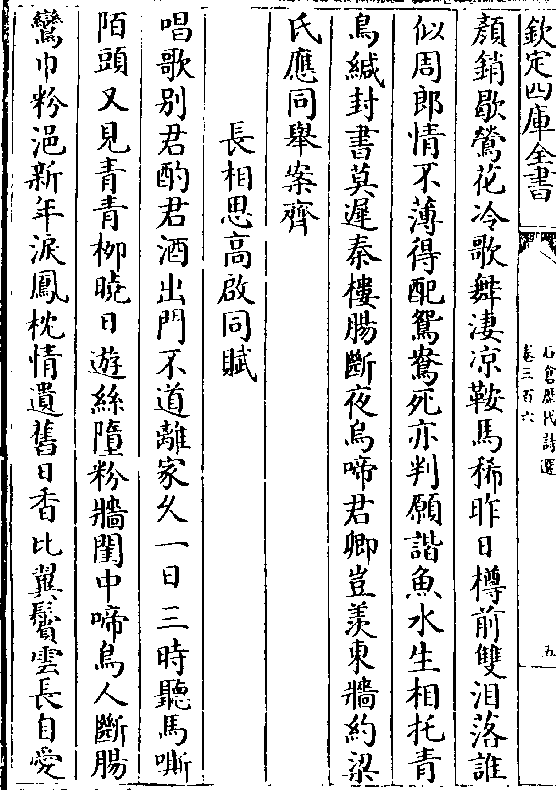 欽定四庫全書
石倉歷代詩選
卷三百六
五
顔銷歇鶯花冷歌舞淒凉鞍馬稀昨日樽前雙泪落誰
似周郎情不薄得配鴛鴦死亦判願諧魚水生相托青
鳥緘封書莫遲秦樓腸斷夜烏啼君卿豈羡東牆約梁
氏應同舉案齊
長相思高啟同賦
唱歌别君酌君酒出門不道離家久一日三時聽馬嘶
陌頭又見青青栁曉日遊絲墮粉牆閨中啼鳥人斷腸
鸞巾粉浥新年淚鳳枕情遺舊日香比翼鬢雲長自愛